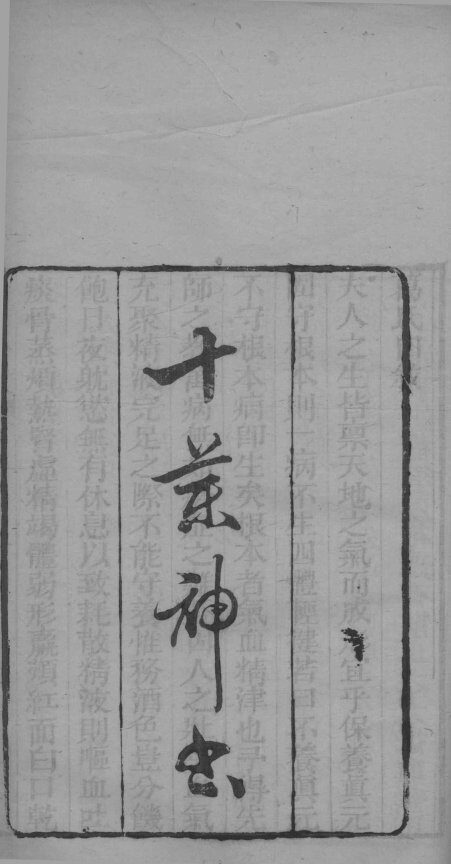 十藥神書
夫人之生皆稟天地之氣而成 宜乎保養眞元
固守根本則一病不生四體輕健若曰不養眞元
不守根本病卽生矣根本者氣血精津也予得先
師之 萬病無 之 人之 氣
充聚精液完足之際不能守養惟務酒色豈分饑
飽日夜躭慾無有休息以致耗散精液則嘔血吐
痰骨蒸煩熱腎虛精竭體弱形羸頰紅面白口乾